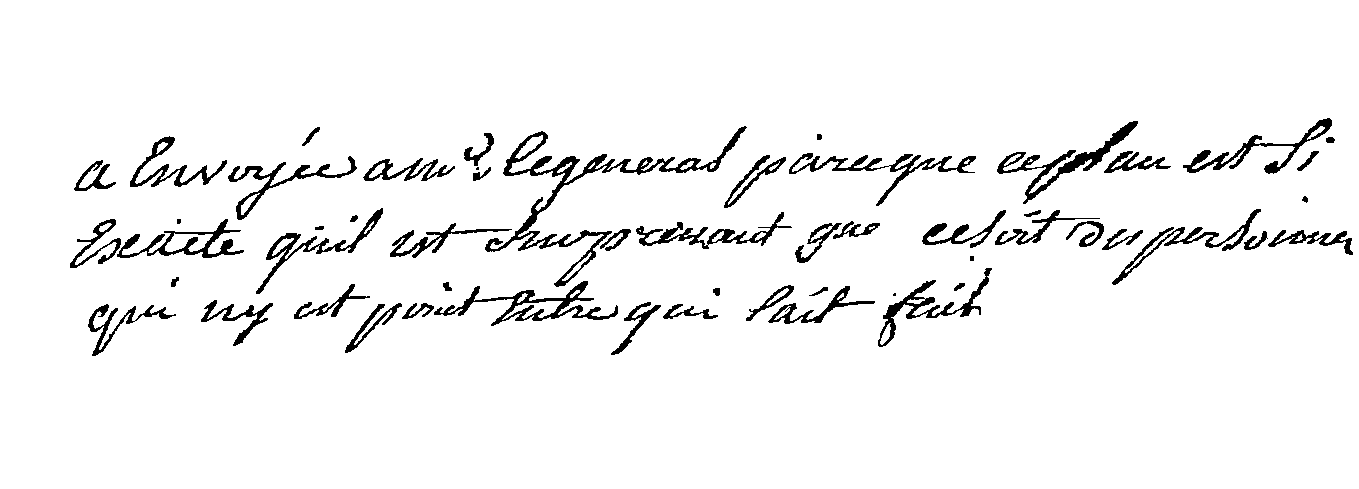 a Envoyée a mr. le general parceque ce plan est Si
Exacte quil est Surprenant que ce soit du personnes
qui ny est point Entre qui lait fait